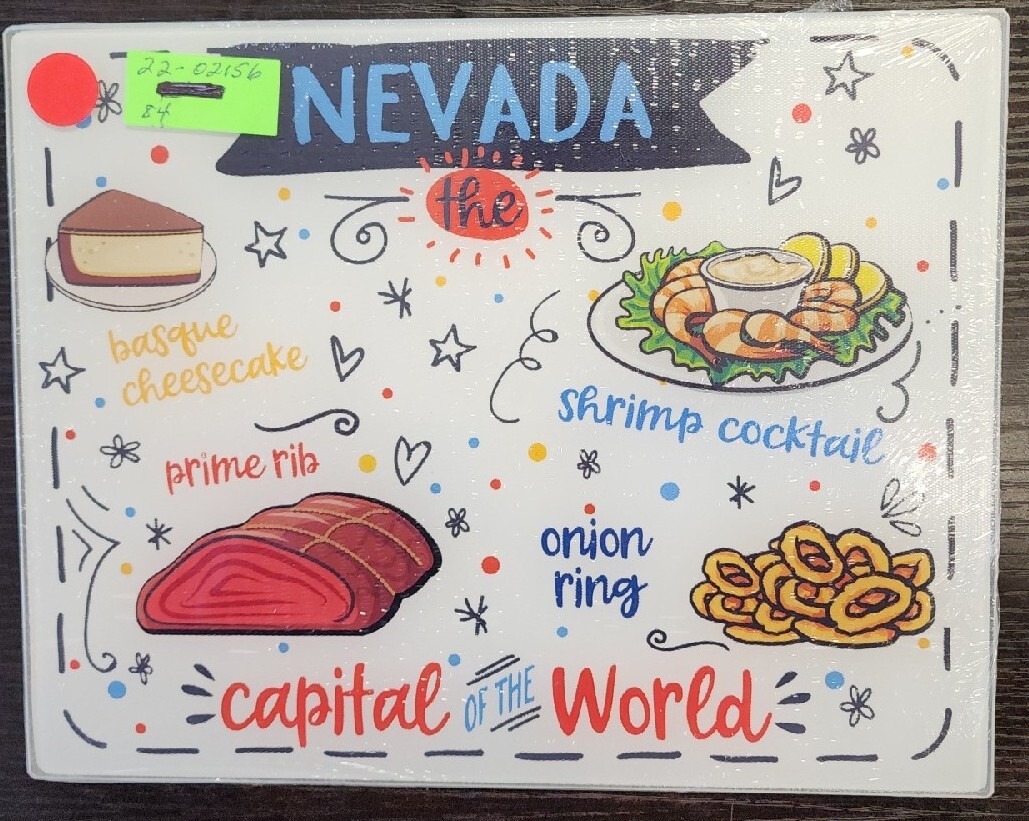 22-02156
84
NEVADA
the
basque
cheesecake
shrimp cocktail
prime rib
onion
ring
capital OF THE World